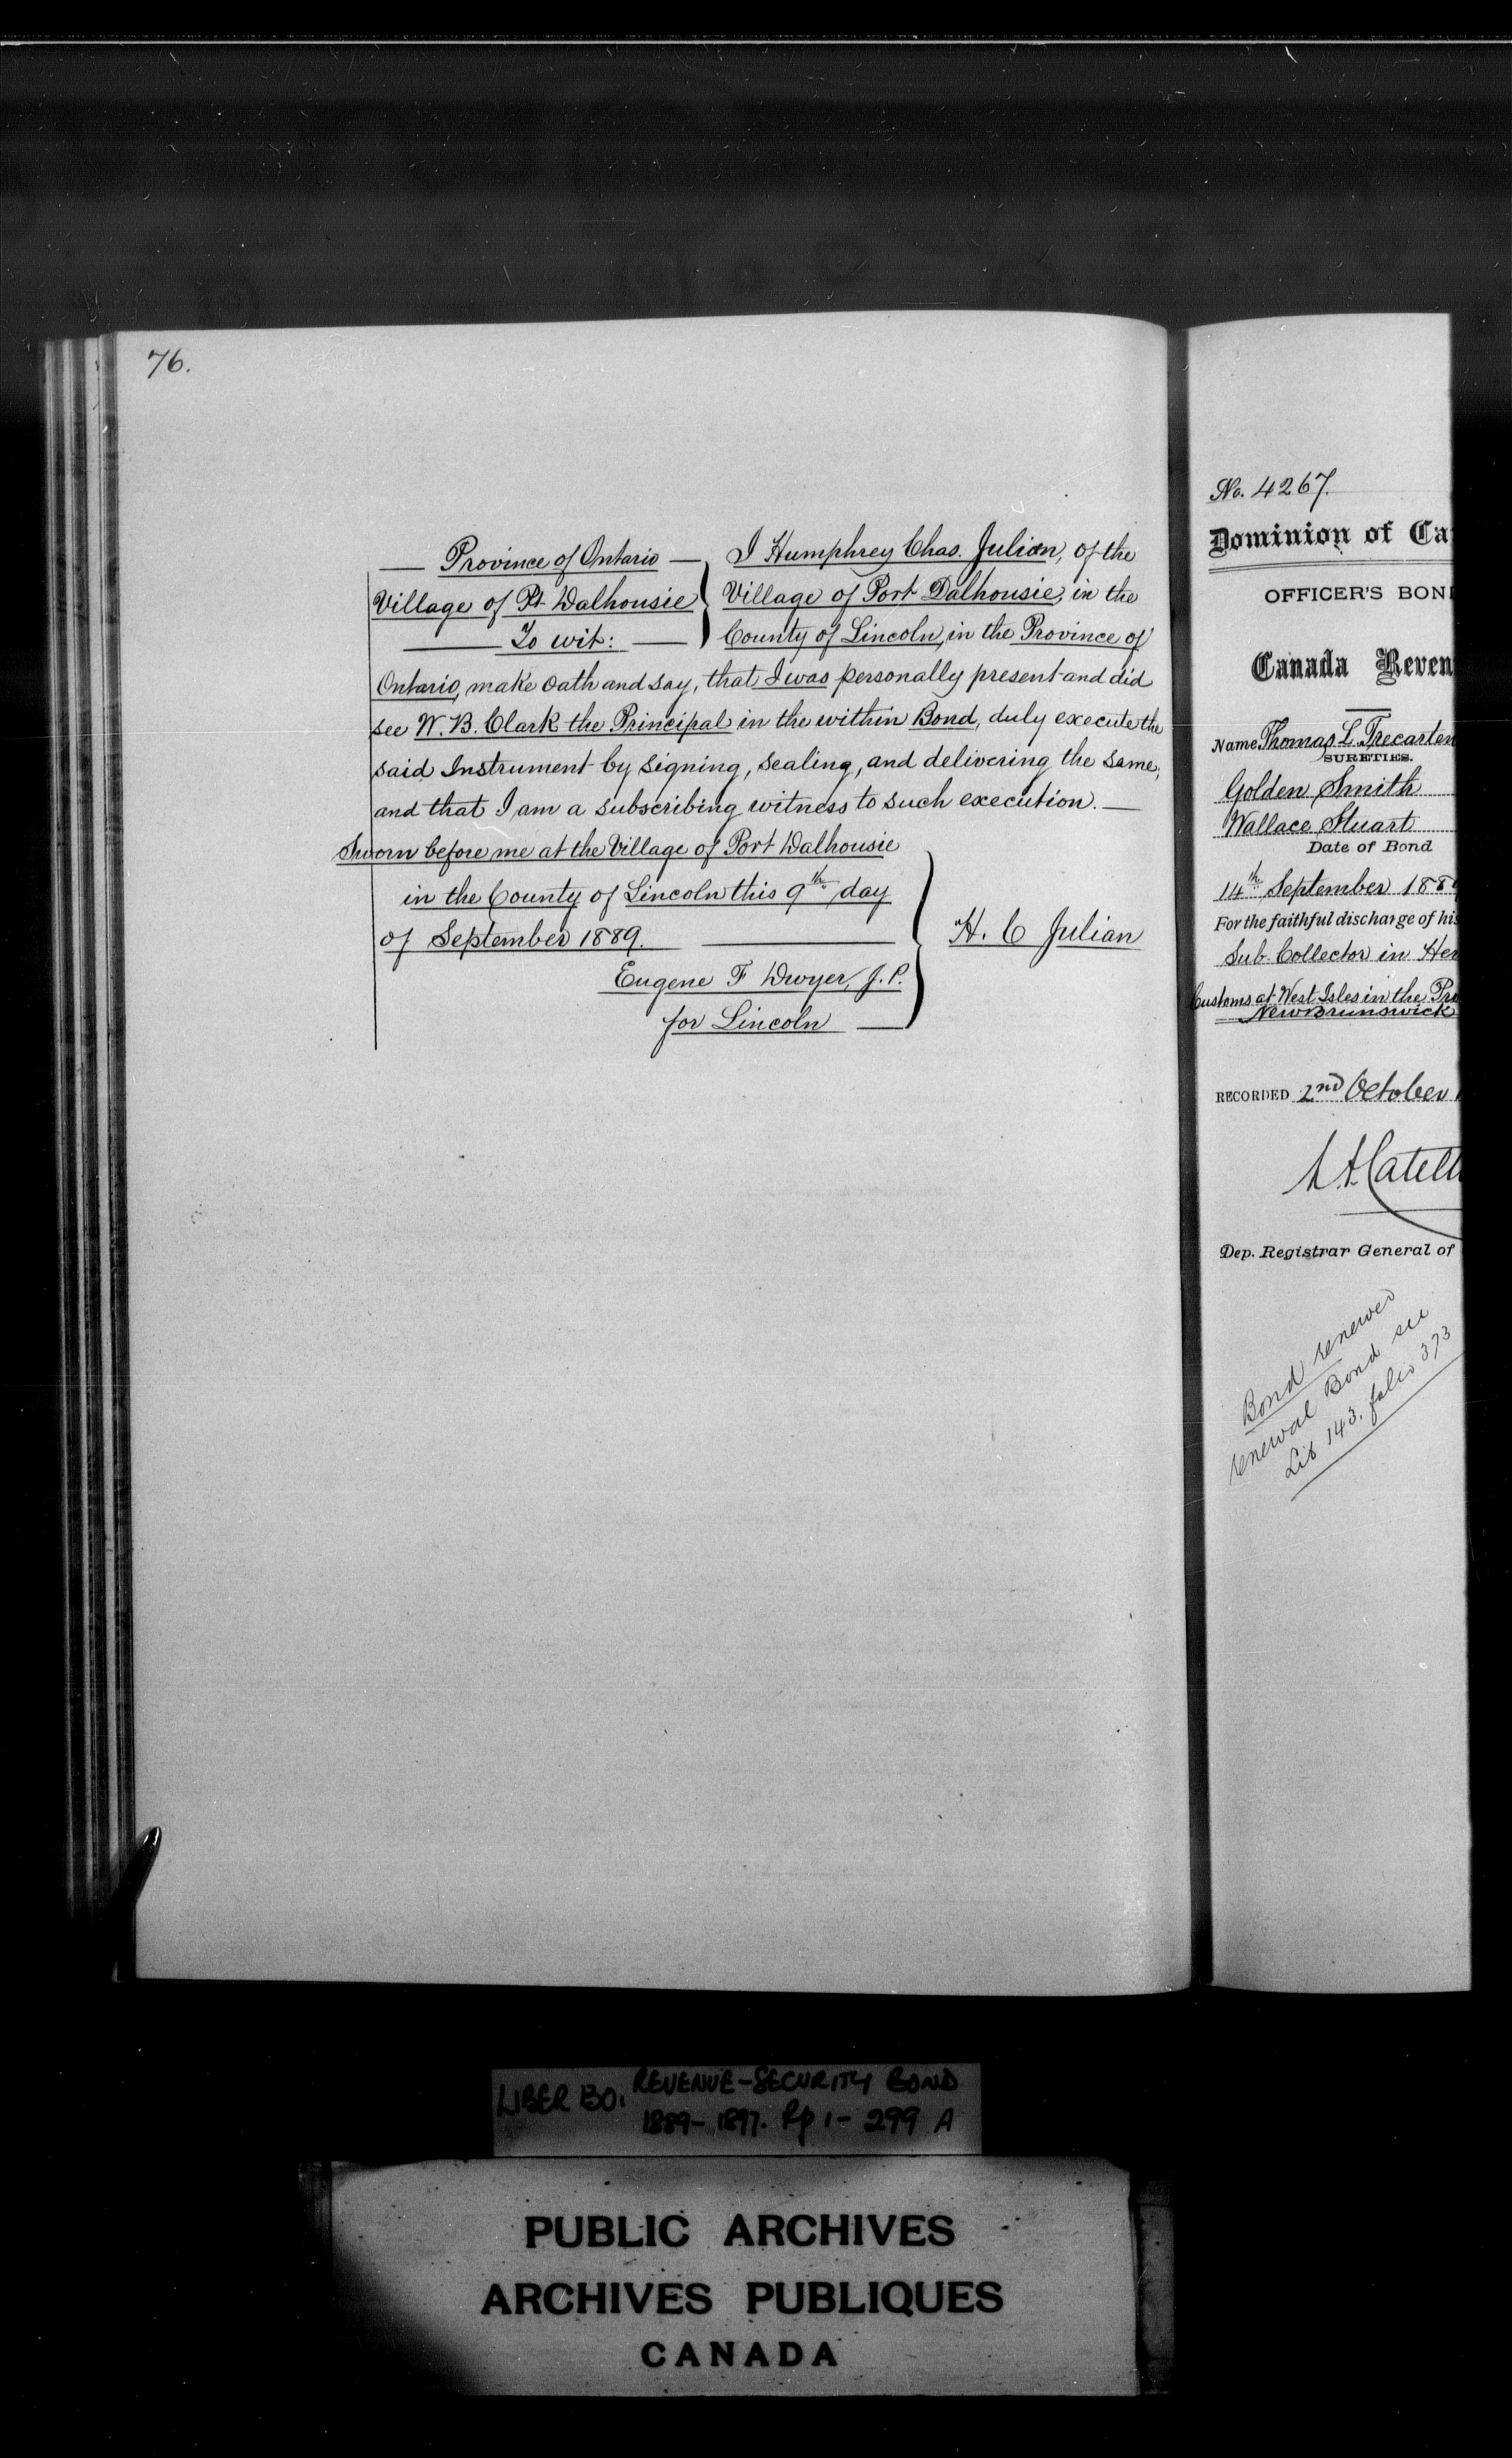 76.
Province of Ontario
Village of Pt Dalhousie
To wit:
I Humphrey Chas. Julian, of the
Village of Port Dalhousie, in the
County of Lincoln, in the Province of
Ontario, make oath and say, that I was personally present and did
see W. B. Clark the Principal in the within Bond, duly execute the
said Instrument by signing, sealing, and delivering the same,
and that I am a subscribing witness to such execution.
Sworn before me at the Village of Port Dalhousie
in the County of Lincoln this 9th day
of September 1889.
Eugene F Dwyer, J.P.
for Lincoln
H. C Julian
No. 4267.
Dominion of Ca
OFFICER'S BON
Canada Reven
Name Thomas L. Trecarten
SURETIES.
Golden Smith
Wallace Stuart
Date of Bond
14th September 188
For the faithful discharge of his
Sub-Collector in Her
Customs at West Isles in the Pro
New Brunswick
RECORDED 2nd October
Dep. Registrar General of
Bond renewed
renewal Bond see
Lib 143. folio 373
LIBER 130. REVENUE-SECURITY BOND
1889-1897. Pp 1- 299 A
PUBLIC ARCHIVES
ARCHIVES PUBLIQUES
CANADA